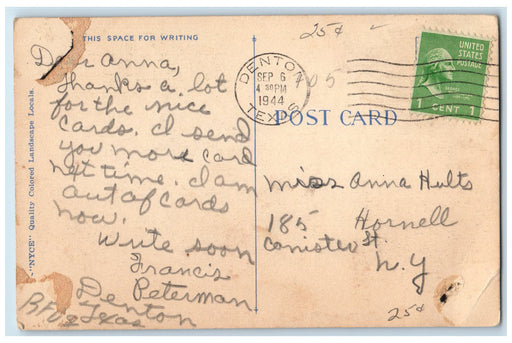 THIS SPACE FOR WRITING
25¢
Dear Anna,
Thanks a lot
for the nice
cards. I send
you more card
next time. I am
out of cards
now.
Write soon
Francis
Peterman
Denton
Texas
"NYCE" Quality Colored Landscape Locals.
DENTON
SEP 6
4 30PM
1944
TEXAS
UNITED
STATES
POSTAGE
1 CENT 1
POST CARD
Miss Anna Hults
185 Hornell
Canisteo St.
N.Y
25¢